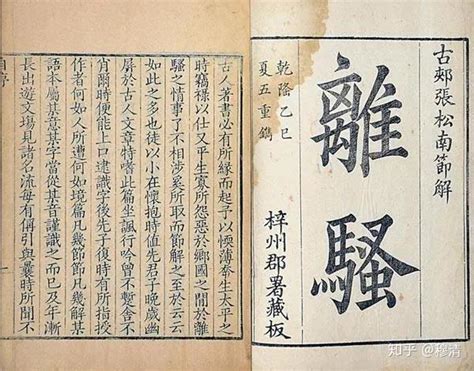 古郟張松南節解
離騷
乾隆乙巳
夏五重鐫
梓州郡署藏板
古人著書必有所緣而起予以薄幸生太平之
時竊祿以仕又平生寡所怨惡於鄉國之間於離
騷之情事了不相涉奚所取而節解之至於云云
如此之多也徒以小在懷抱時值先君子晚歲幽
屏於古人文章特嗜此編坐諷行吟曾不暫舍不
肖爾時便能上口逮識字後先子復時有所指授
作者何如人所遭何如境篇凡幾節凡幾解某
語本屬某意某字當從某音謹識之而已及年漸
長出遊文塲見諸名流每有偁引與曩時所聞不
自序
知乎 @穆清